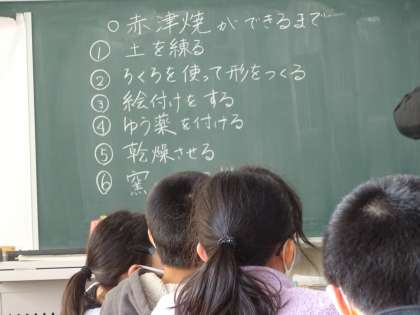 ○赤津焼ができるまで
① 土を練る
② ろくろを使って形をつくる
③ 絵付けをする
④ ゆう薬を付ける
⑤ 乾燥させる
⑥ 窯